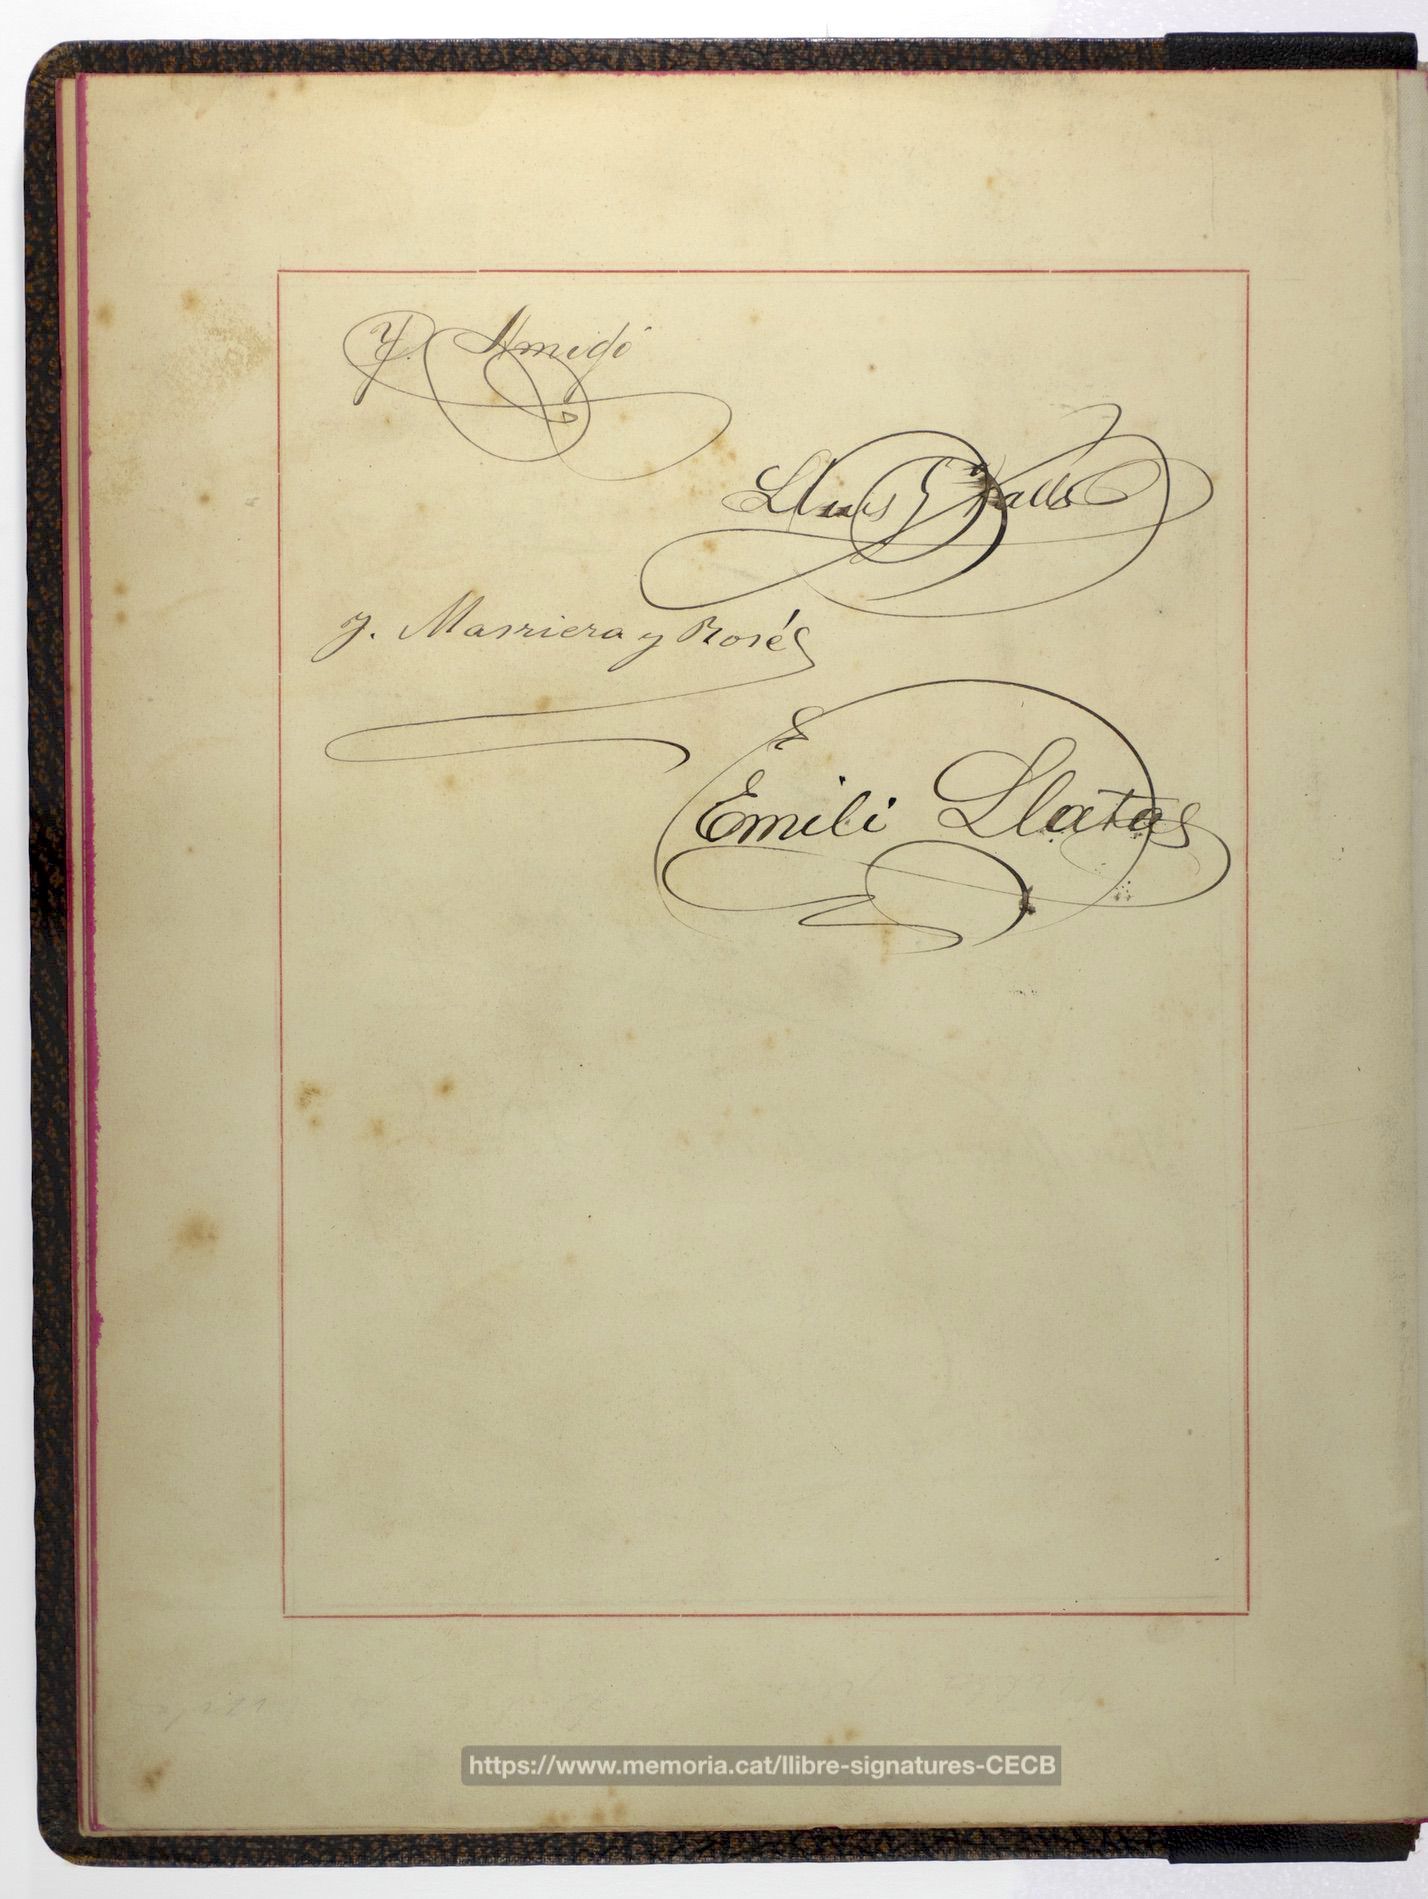 J. Amigó
Lluis G Valls
J. Masriera y Rosés
Emili Llatas
https://www.memoria.cat/llibre-signatures-CECB